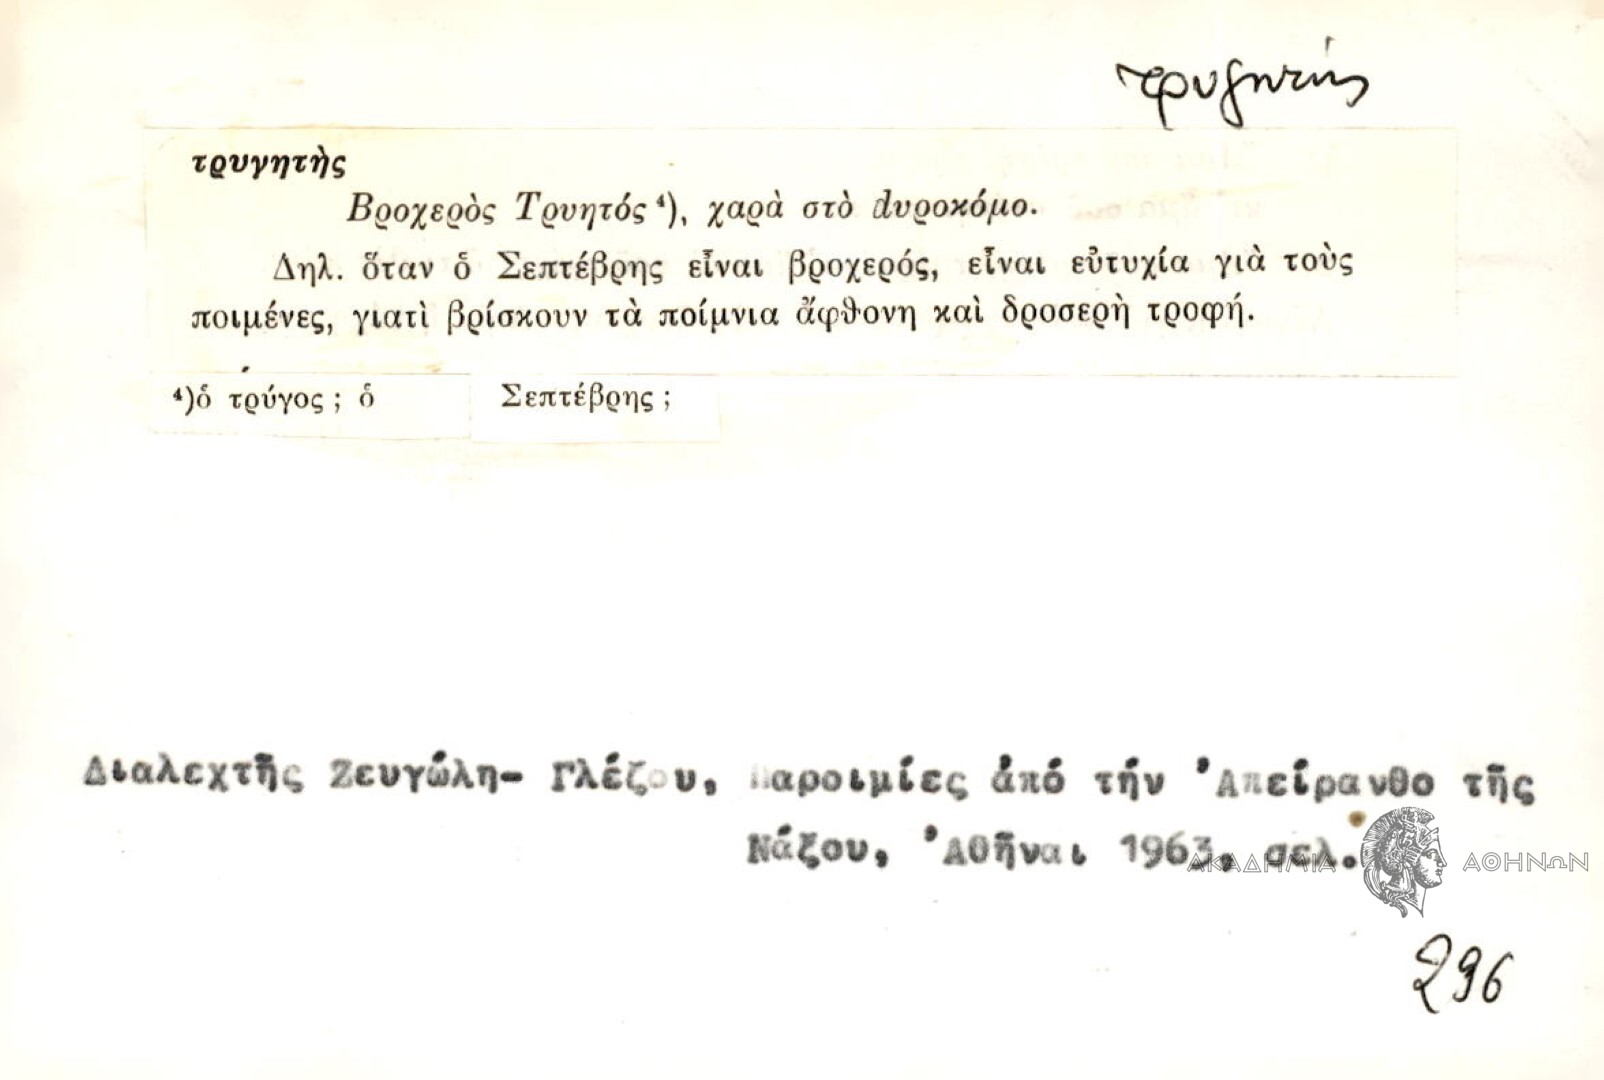 τρυγητής
τρυγητὴς
Βροχερὸς Τρυητός ⁴), χαρὰ στὸ dυροκόμο.
Δηλ. ὅταν ὁ Σεπτέβρης εἶναι βροχερός, εἶναι εὐτυχία γιὰ τοὺς
ποιμένες, γιατὶ βρίσκουν τὰ ποίμνια ἄφθονη καὶ δροσερὴ τροφή.
⁴)ὁ τρύγος ; ὁ Σεπτέβρης ;
Διαλεχτῆς Ζευγώλη- Γλέζου, Παροιμίες ἀπό τήν Ἀπείρανθο τῆς
Νάξου, Ἀθῆναι 1963, σελ.
ΑΚΑΔΗΜΙΑ ΑΘΗΝΩΝ
296